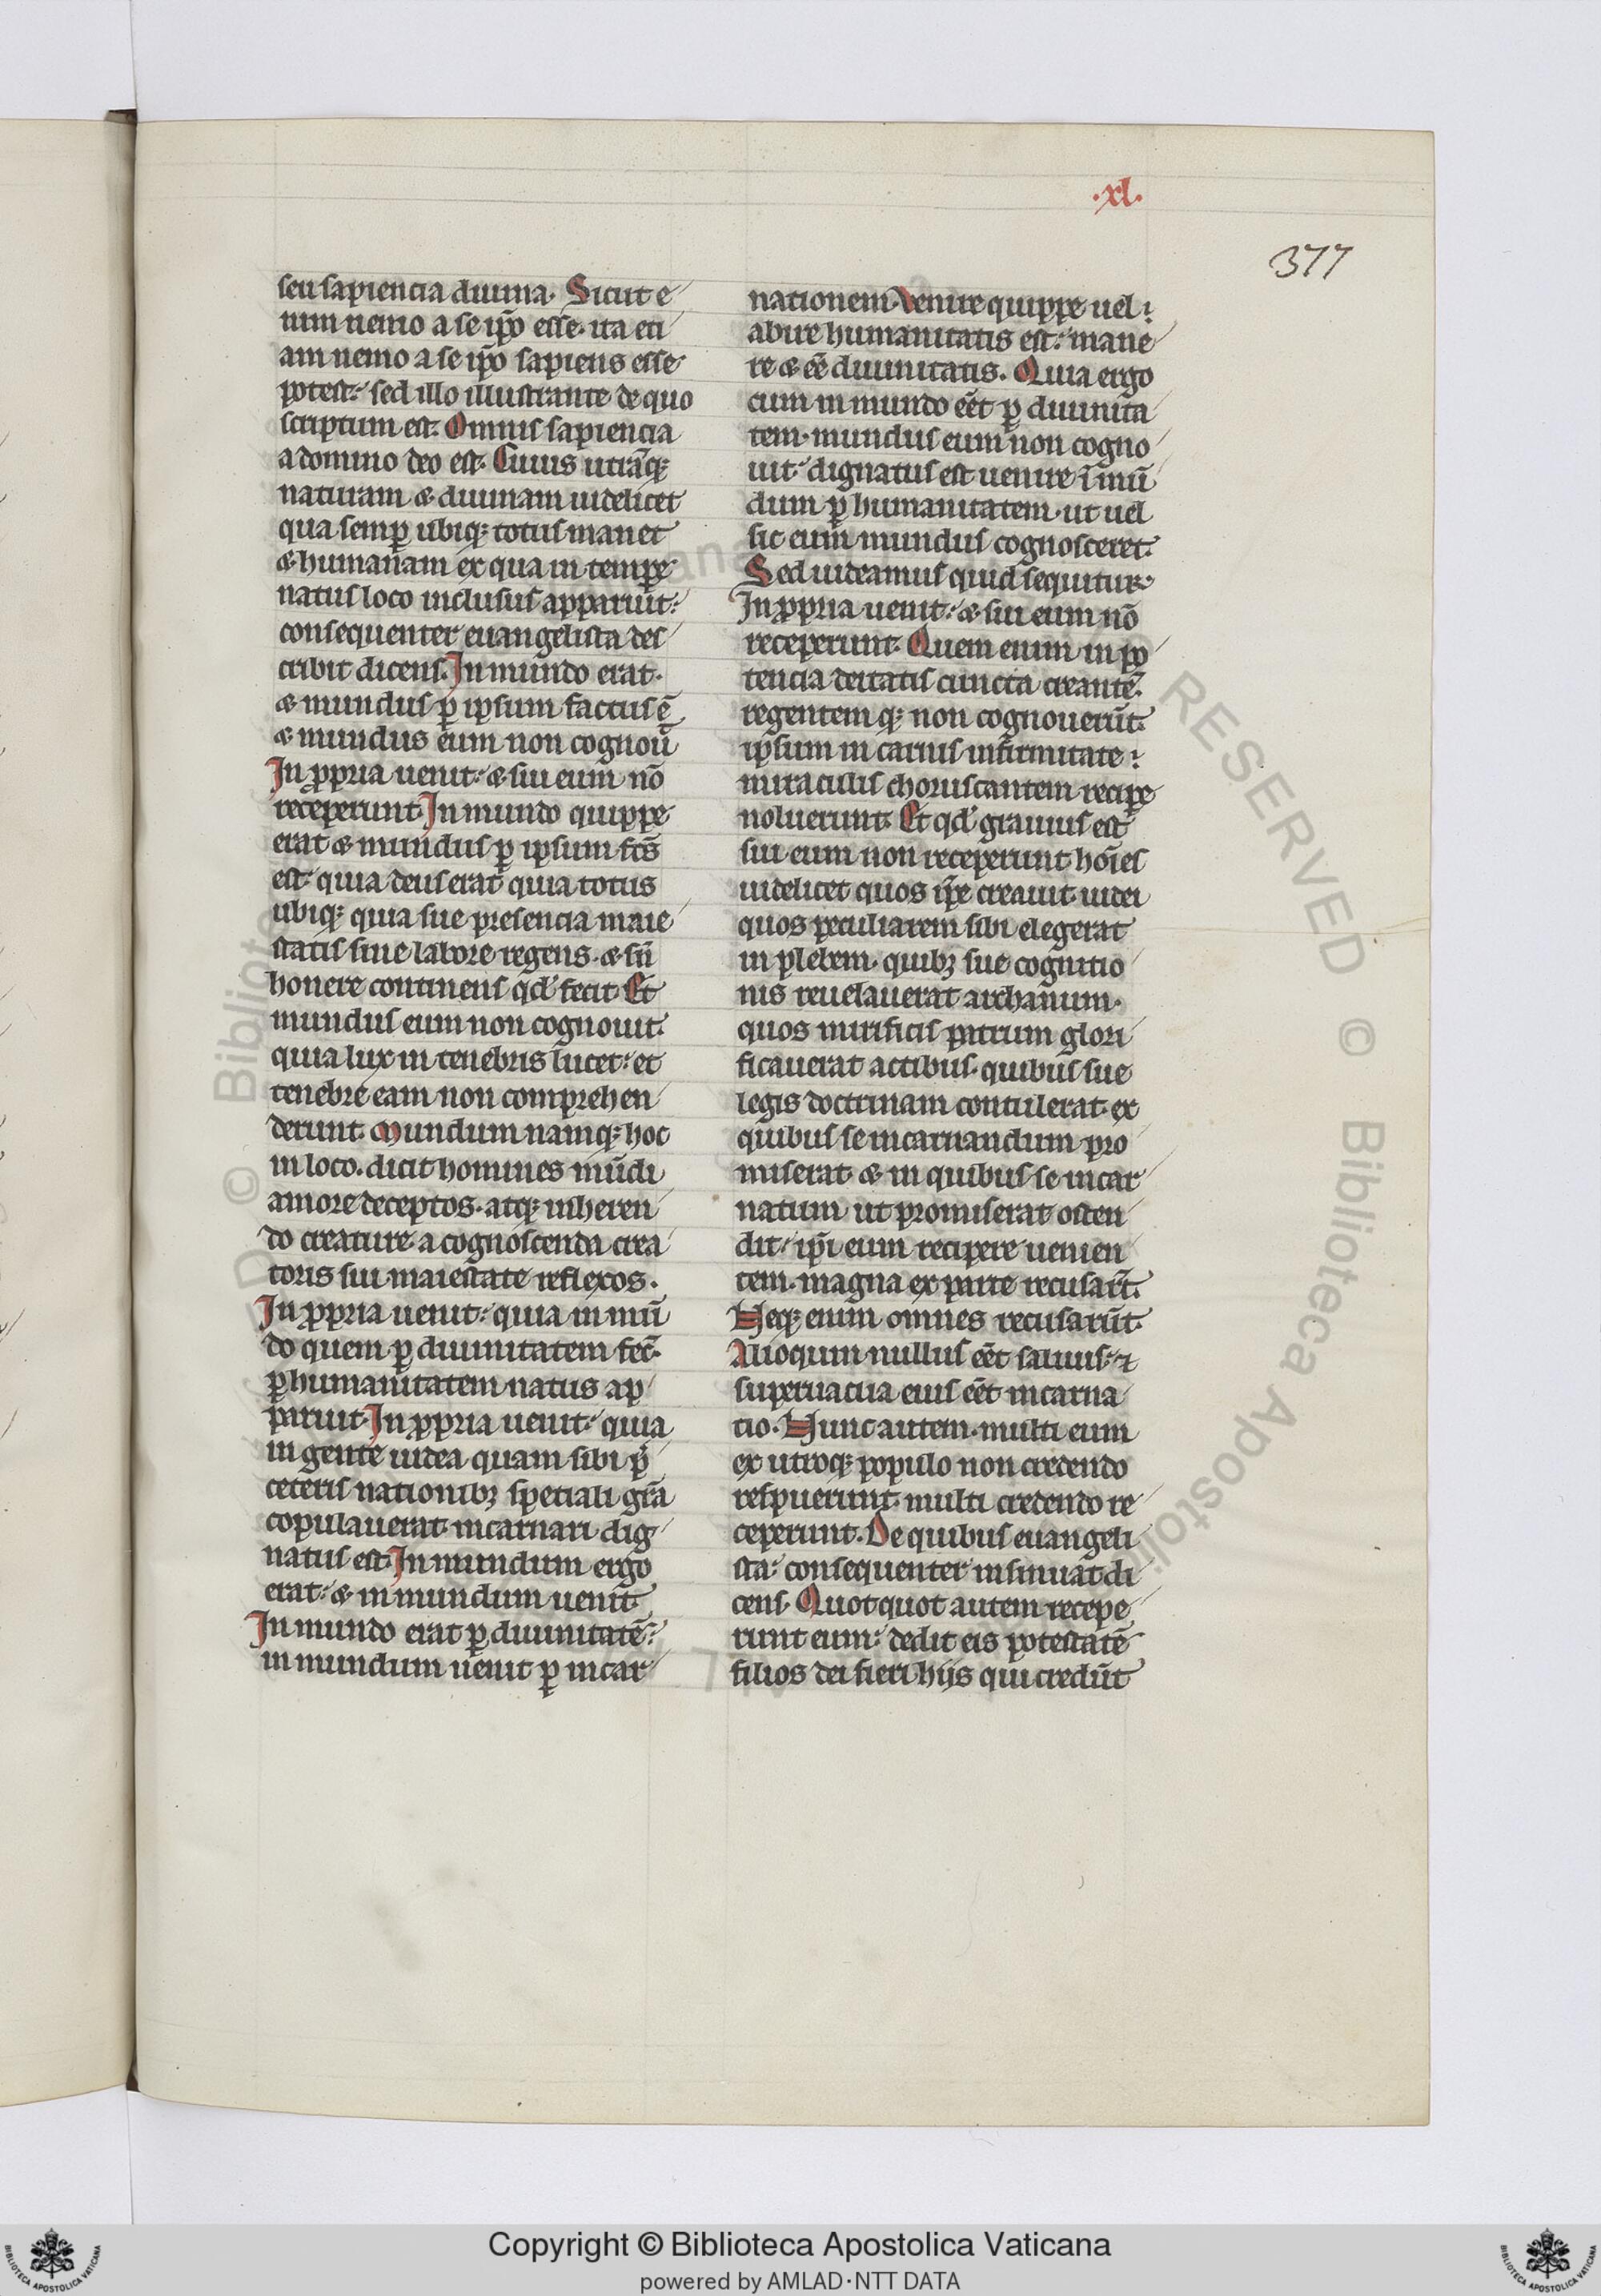 .xl.
377
seu sapiencia diuina. Sicut e
nim nemo a se ip̄o esse. ita eti
am nemo a se ip̄o sapiens esse
potest: sed illo illustrante de quo
scriptum est. Omnis sapiencia
a domino deo est. Cuius utrāq;
naturam & diuinam uidelicet
qua semꝑ ubiq; totus manet
& humanam ex qua in tempe
natus loco inclusus apparuit:
consequenter euangelista des
cribit dicens. In mundo erat.
& mundus ꝑ ipsum factus ē
& mundus eum non cognoū
In ꝓpria uenit: & sui eum nō
receperunt. In mundo quippe
erat & mundus ꝑ ipsum fcs̄
est quia deus erat quia totus
ubiq; quia sue presencia maie
statis sine labore regens. & sn̄
honere continens qd' fecit. Et
mundus eum non cognouit.
quia lux in tenebris lucet: et
tenebre eam non comprehen
derunt. Mundum namq; hoc
in loco. dicit homines mūdi
amore deceptos. atq; inheren
do creature a cognoscenda crea
toris sui maiestate reflexos.
In ꝓpria uenit: quia in mū
do quem ꝑ diuinitatem fec̄.
ꝑ humanitatem natus ap
paruit. In ꝓpria uenit: quia
in gente iudea quam sibi p̄
ceteris nationibꝫ speciali gr̄a
copulauerat. incarnari dig
natus est. In mundum ergo
erat: & in mundum uenit.
In mundo erat ꝑ diuinitatē:
in mundum uenit ꝑ incar
nationem. Venire quippe uel
abire humanitatis est: mane
re & eē diuinitatis. Quia ergo
cum in mundo eēt ꝑ diuinita
tem. mundus eum non cogno
uit: dignatus est uenire ī mū
dum ꝑ humanitatem. ut uel
sic eum mundus cognosceret.
Sed uideamus quid sequitur.
In ꝓpria uenit: & sui eum nō
receperunt. Quem enim in po
tencia deitatis cuncta creantē.
regentem q; non cognouerūt.
ipsum in carnis infirmitate
miraculis choruscantem recipe
noluerunt. Et qd' grauius est
sui eum non receperunt hoīes
uidelicet quos ip̄e creauit. iudei
quos peculiarem sibi elegerat
in plebem. quibꝫ sue cognitio
nis reuelauerat archanum.
quos mirificis patrum glori
ficauerat actibus. quibus sue
legis doctrinam contulerat. ex
quibus se incarnandum pro
miserat. & in quibus se incar
natum ut promiserat osten
dit: ip̄i eum recipere uenien
tem. magna ex parte recusar̄t.
Neq; enim omnes recusarūt.
Alioquin nullus eēt saluus: ⁊
superuacua eius eēt incarna
tio. Nunc autem. multi eum
ex utroq; populo non credendo
respuerunt. multi credendo re
ceperunt. De quibus euangeli
sta: consequenter insinuat di
cens. Quotquot autem recepe
runt eum: dedit eis potestatē
filios dei fieri hijs qui credūt
Copyright © Biblioteca Apostolica Vaticana
powered by AMLAD·NTT DATA